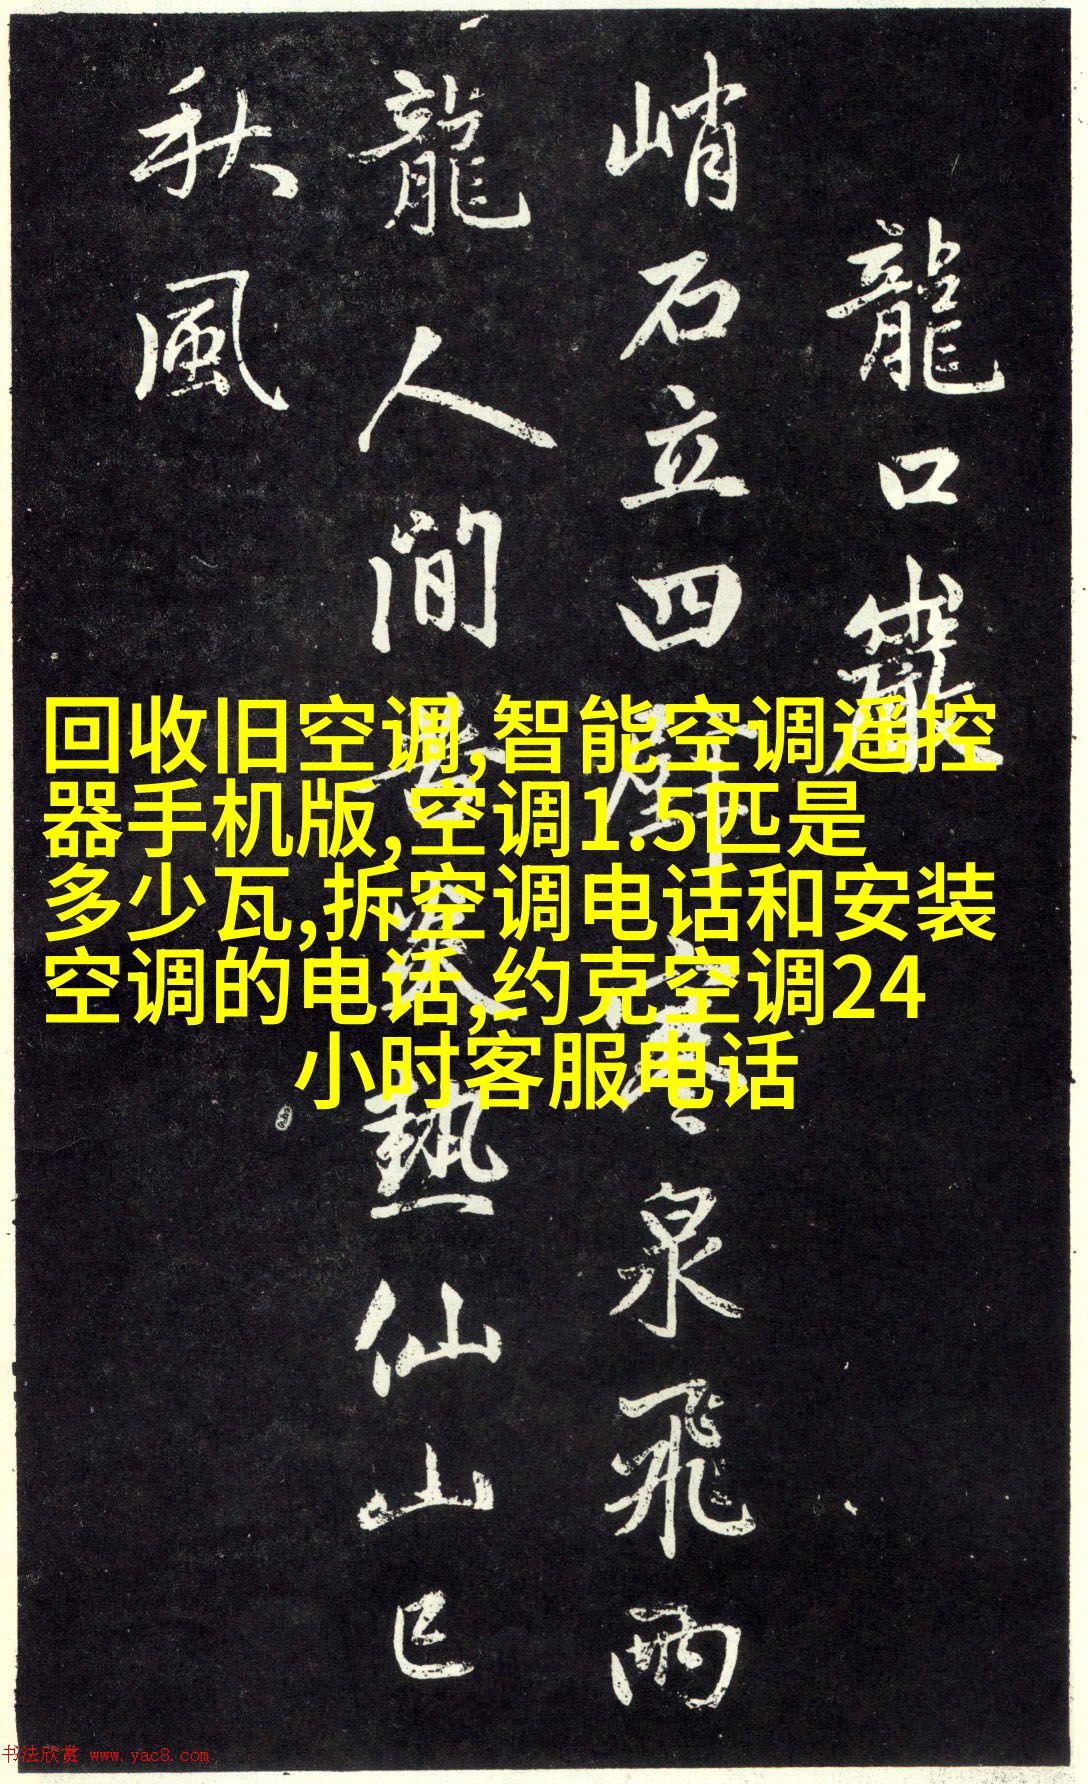 龍口巖
峭石立四壁寒泉飛雨
龍人間苦炎熱仙山已
秋風
回收旧空调,智能空调遥控
器手机版,空调1.5匹是
多少瓦,拆空调电话和安装
空调的电话,约克空调24
小时客服电话
书法欣赏 www.yac8.com